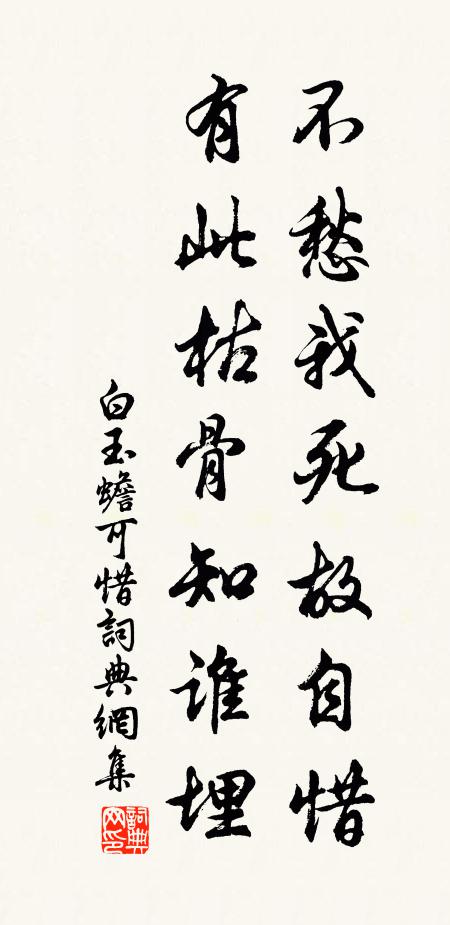 不愁我死故自惜
有此枯骨知谁埋
白玉蟾可惜詞典網集
詞典网印